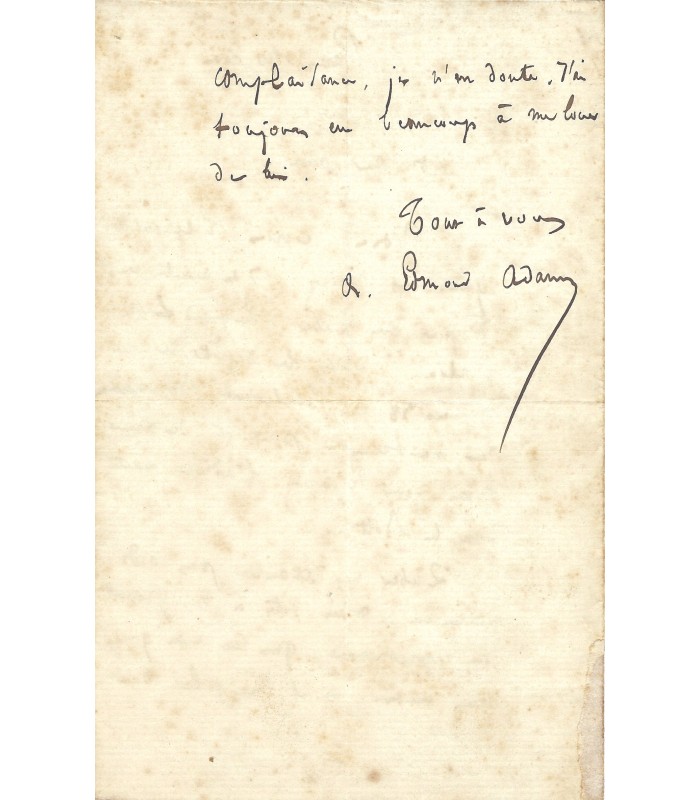 complaisance, je n'en doute. J'ai
toujours eu beaucoup à me louer
de lui.
Tout à vous
Edmond Adam